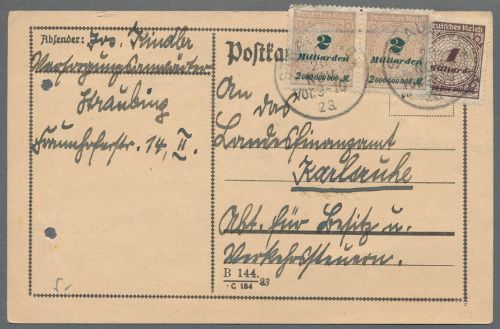 Absender: Jos. Kindler
Versorgungsanwärter
Straubing
Fraunhoferstr. 14, II.
Postkar
Deutsches Reich
2
Milliarden
2000000000 M.
Deutsches Reich
2
Milliarden
2000000000 M.
1
Milliarde
Vor. 9-10
23.
An das
Landesfinanzamt
Karlsruhe
Abt. für Besitz u.
Verkehrssteuern.
B 144. 23
C 154
5.-